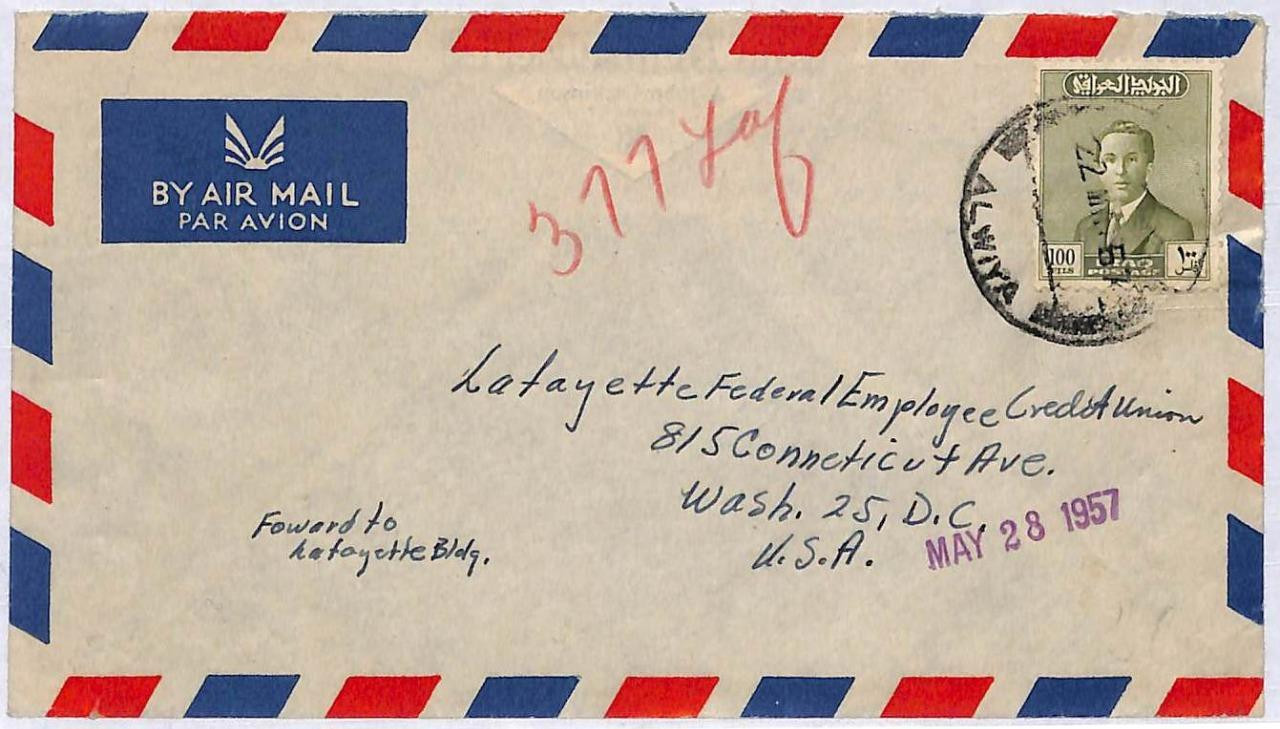 BY AIR MAIL
PAR AVION
377 Laf
البريد العراقي
100
FILS
IRAQ
POSTAGE
١٠٠
فلس
ALWIYA
22
57
Lafayette Federal Employee Credit Union
815 Conneticut Ave.
Wash. 25, D.C.
U.S.A.
MAY 28 1957
Foward to
Lafayette Bldg.